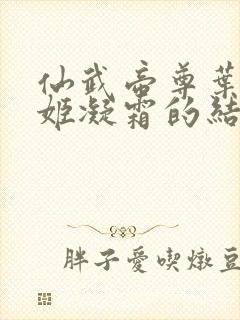 仙武帝尊葉
姬凝霜的結
胖子愛喫燉豆